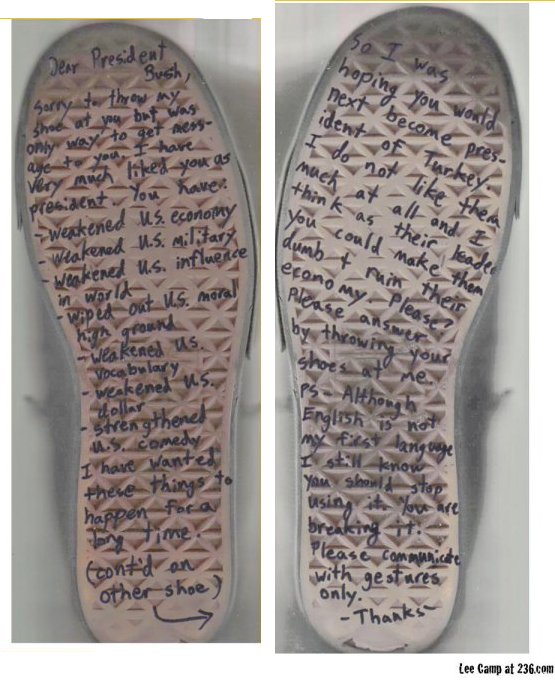 Dear President
Bush,
sorry to throw my
shoe at you but was
only way to get mess-
age to you. I have
very much liked you as
president. You have:
- weakened U.S. economy
- weakened U.S. military
- weakened U.S. influence
in world
- wiped out U.S. moral
high ground
- weakened U.S.
vocabulary
- weakened U.S.
dollar
- strengthened
U.S. comedy
I have wanted
these things to
happen for a
long time.
(cont'd on
other shoe)
So I was
hoping you would
next become pres-
ident of Turkey.
I do not like them
much at all and I
think as their leader
you could make them
dumb + ruin their
economy. Please?
Please answer
by throwing your
shoes at me.
PS - Although
English is not
my first language
I still know
you should stop
using it. You are
breaking it.
Please communicate
with gestures
only.
- Thanks -
Lee Camp at 236.com